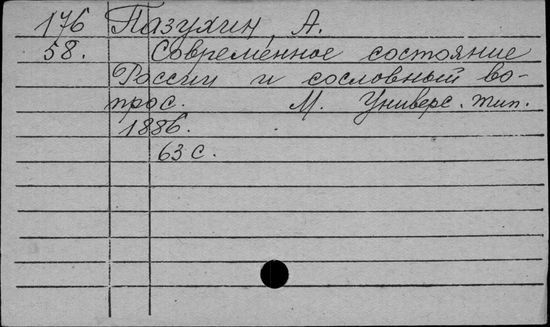 176 Пазухин, А.
58. Современное состояние
России и сословный во-
прос. М. Универс. тип.
1886.
63 с.